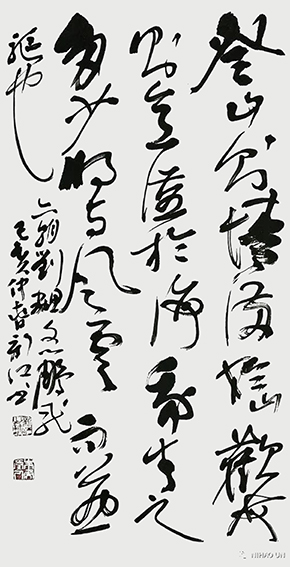 登山則情滿於山觀海
則意溢於海我才之
多少將與風雲而並
驅也
六朝劉勰文心雕龍
己亥仲春新江書
NIHAO UN